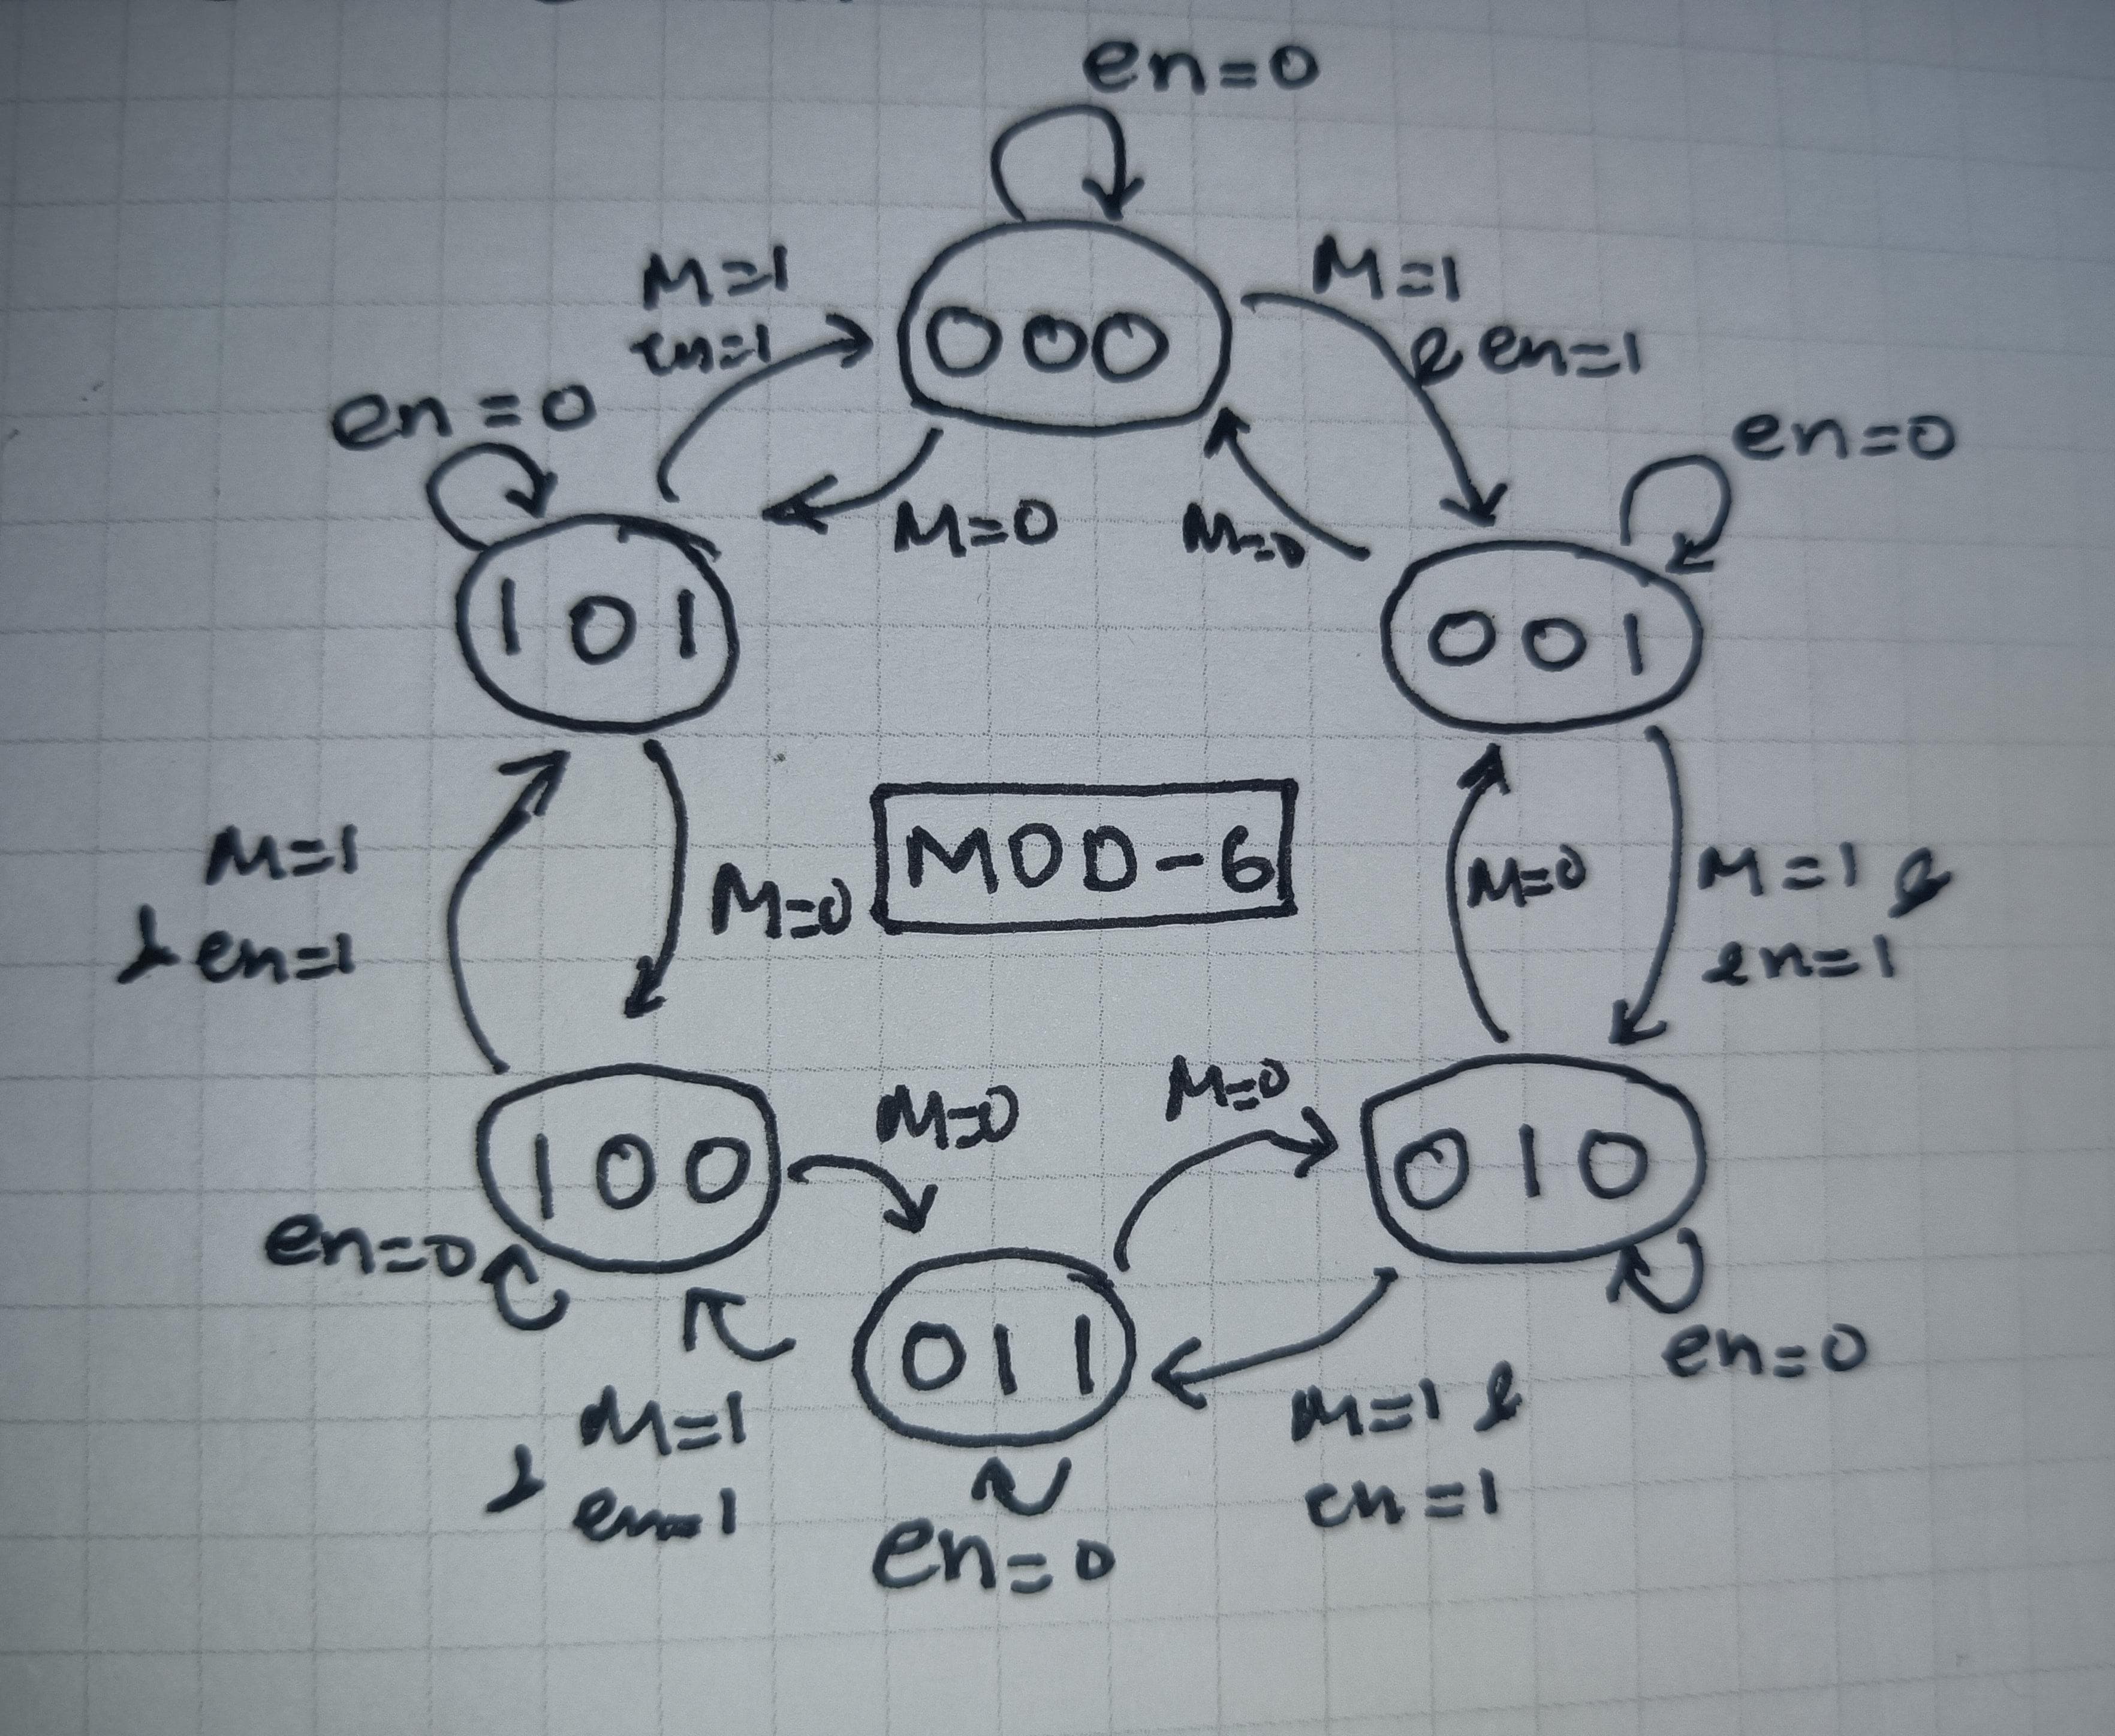 en=0
M=1
en=1
000
M=1
& en=1
en=0
M=0
M=0
en=0
101
001
M=1
& en=1
M=0
MOD-6
M=0
M=1 &
en=1
100
M=0
M=0
010
en=0
011
en=0
M=1
& en=1
M=1 &
en=1
en=0